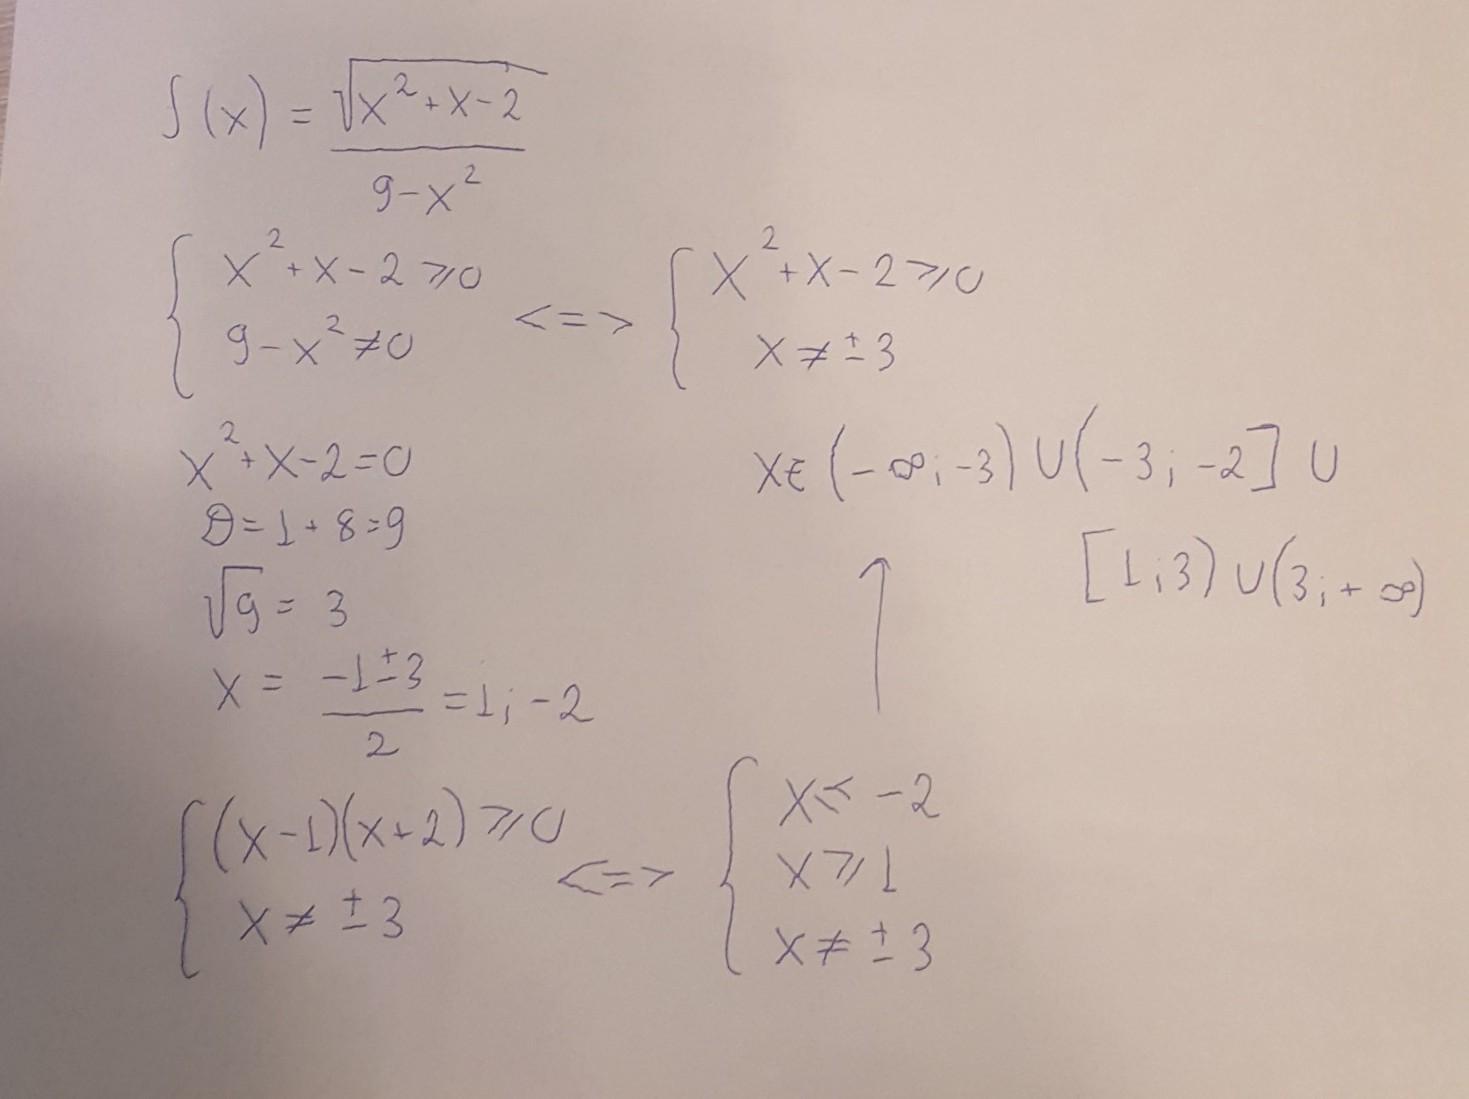 f(x) = √(x²+x-2) / (9-x²)
{ x²+x-2 ⩾0
9-x²≠0
<=>
{ x²+x-2⩾0
x≠±3
x²+x-2=0
D=1+8=9
√9 = 3
x = (-1±3)/2 = 1; -2
{ (x-1)(x+2)⩾0
x≠ ±3
<=>
{ x⩽ -2
x⩾1
x≠ ±3
↑
x∈ (-∞;-3) ∪(-3; -2] ∪
[1;3) ∪(3;+∞)